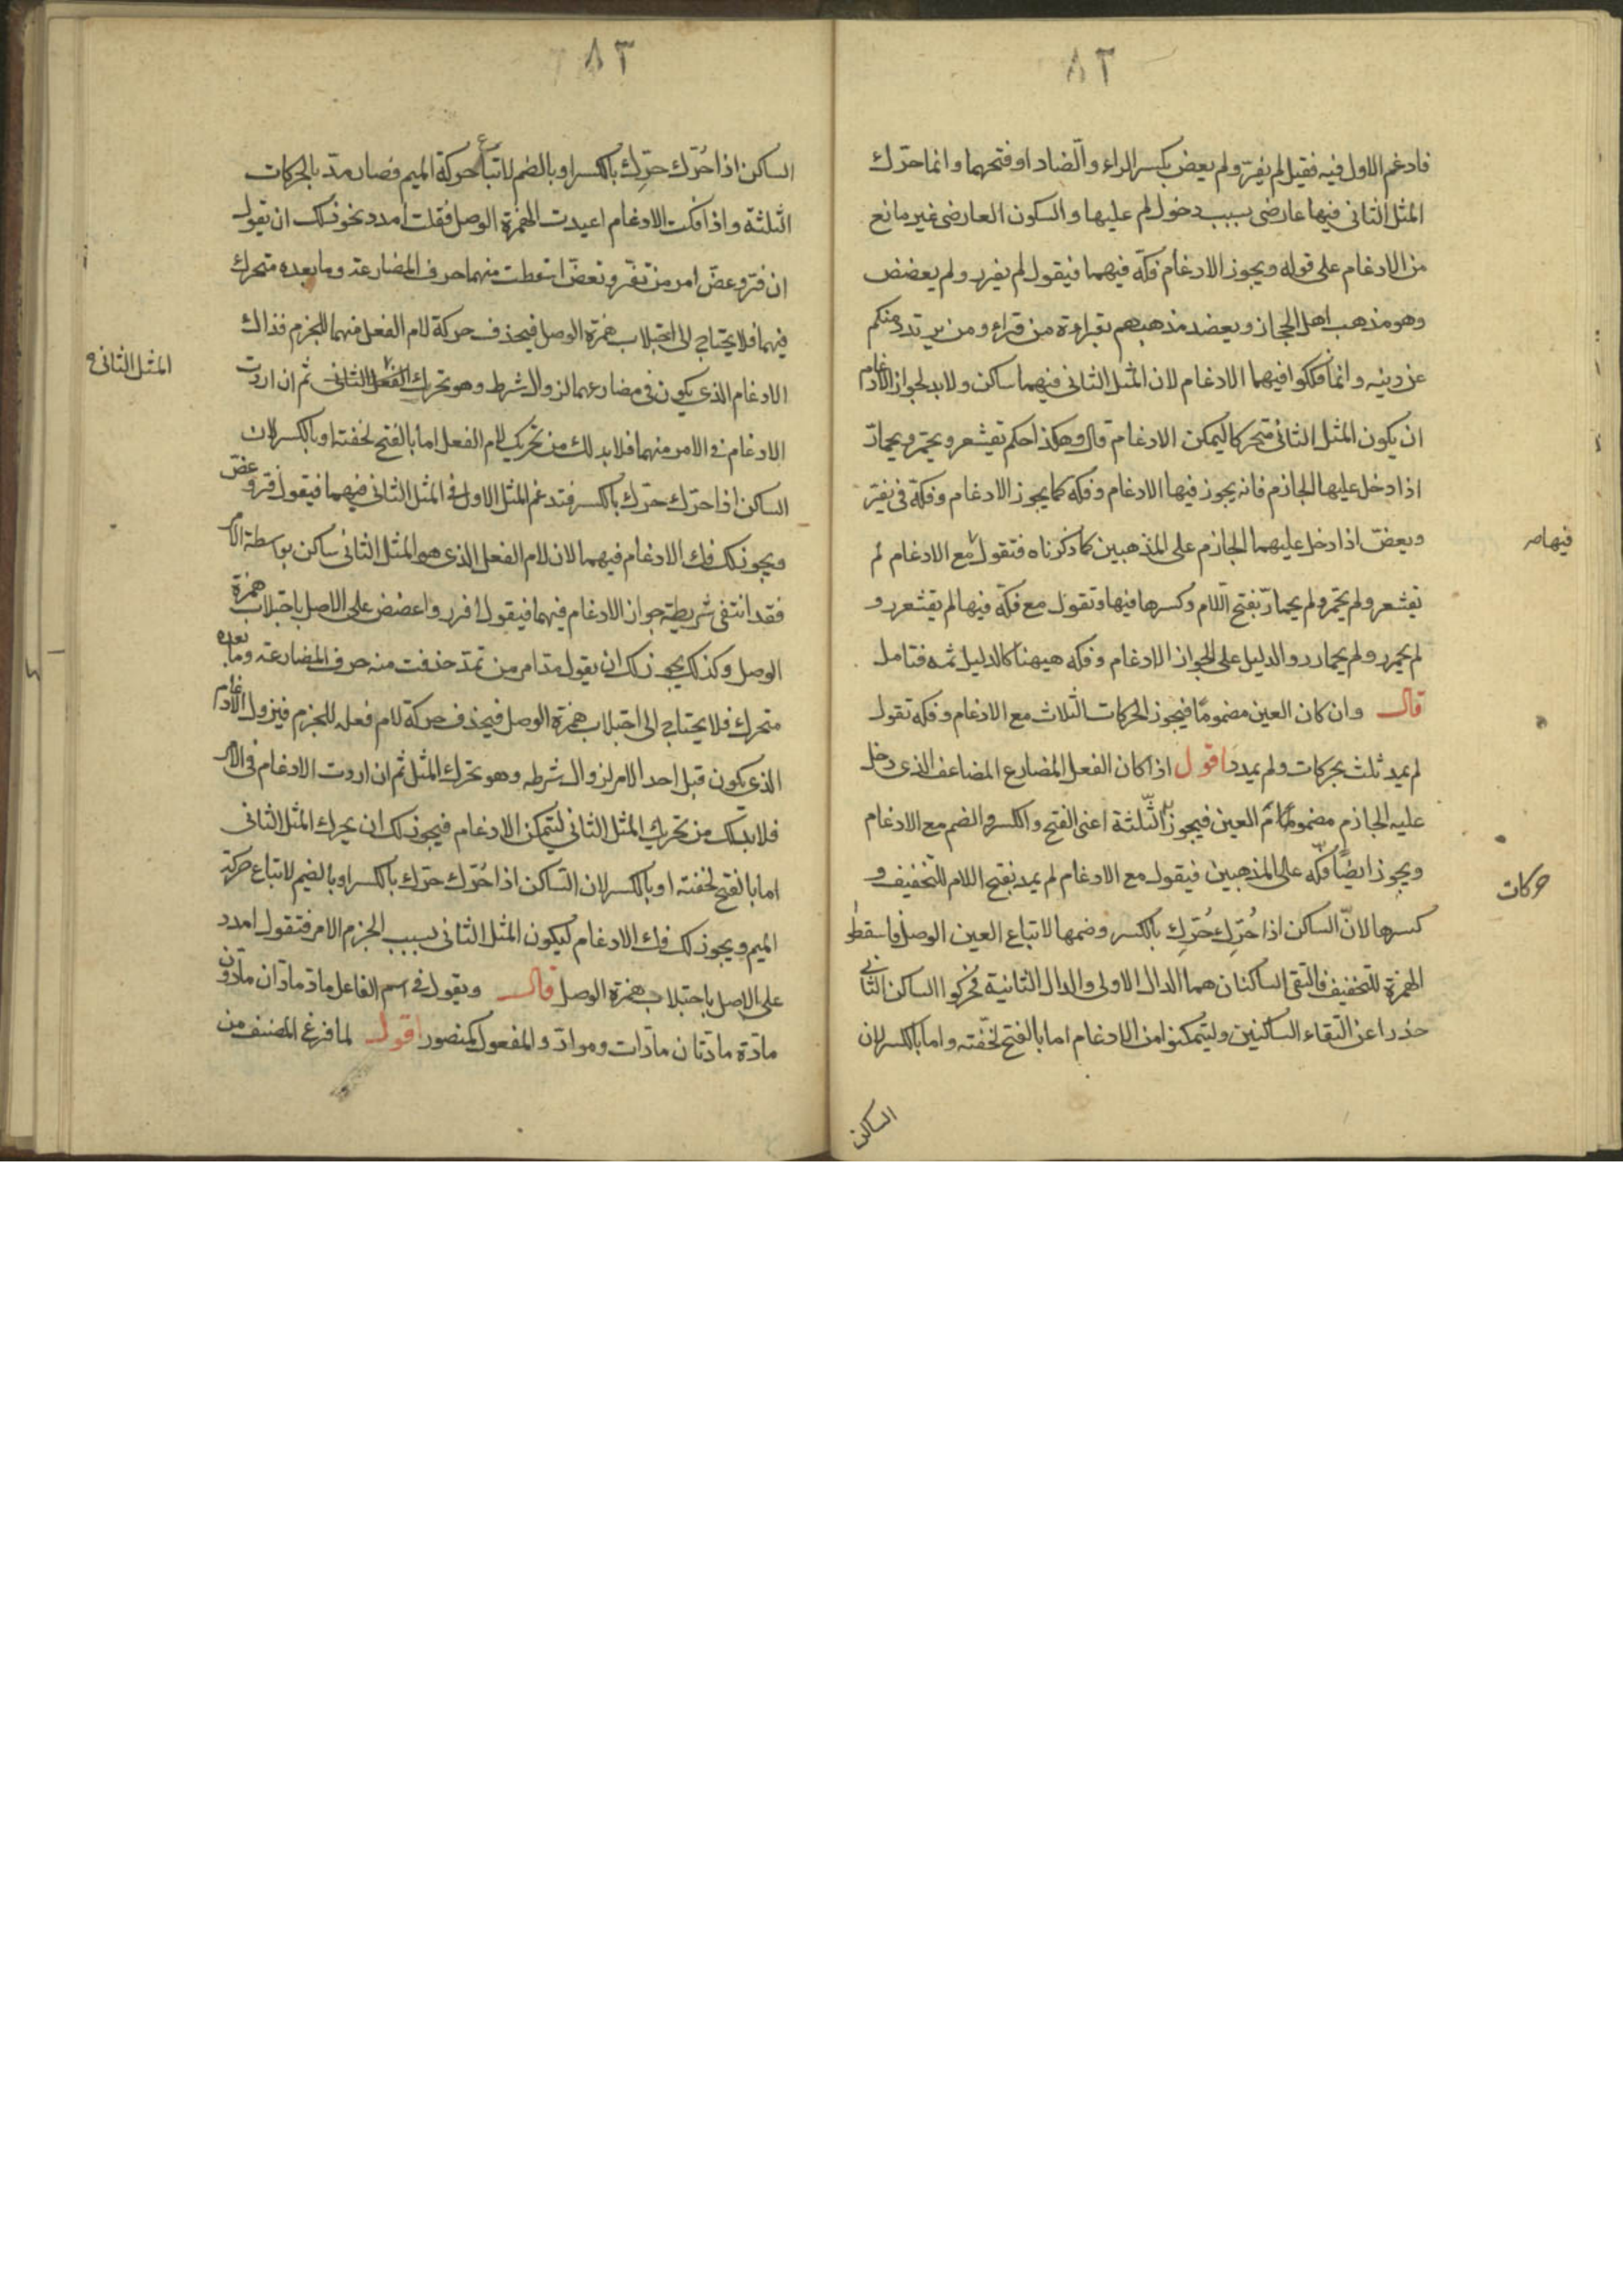 ٨٢
فادغم الاول فيه فقيل لم يفرّ ولم يعضّ بكسر الراء والضاد او فتحهما وانما حرّك
المثل الثانى فيها عارضى بسبب دخول لم عليها والسكون العارضى غير مانع
من الادغام على قوله ويجوز الادغام فكّه فيهما فيقول لم يفرر ولم يعضض
وهو مذهب اهل الحجاز ويعضد مذهبهم بقراءة من قراء ومن يرتدد منكم
عن دينه وانما فككوا فيهما الادغام لان المثل الثانى فيهما ساكن ولابد لجواز الادغام
ان يكون المثل الثانى متحركا ليمكن الادغام قال وهكذا حكم تقشعر ويحمرّ ويحمارّ
اذا دخل عليها الجازم فانه يجوز فيها الادغام وفكّه كما يجوز الادغام وفكّه فى يفرّ
ويعضّ اذا دخل عليهما الجازم على المذهبين كما ذكرناه فتقول مع الادغام لم
فيها صر
تقشعر ولم يحمّر ولم يحمارّ بفتح اللام وكسرها فيها وتقول مع فكّه فيها لم تقشعرر و
لم يحمرر ولم يحمارر والدليل على الجواز الادغام وفكه هيهنا كالدليل ثمه فتامل
قال وان كان العين مضموما فيجوز الحركات الثلاث مع الادغام وفكه تقول
لم يمد ثلث بحركات ولم يمدد اقول اذا كان الفعل المضارع المضاعف الذى دخل
عليه الجازم مضموم العين فيجوز الثلثة اعنى الفتح والكسر والضم مع الادغام
ويجوز ايضًا فكّه على المذهبين فيقول مع الادغام لم يمد بفتح اللام للتخفيف و
حركات
كسرها لانّ الساكن اذا حُرّك حُرّك بالكسر وضمها لاتباع العين الوصل فاسقطوا
الهمزة للتخفيف فالتقى الساكنان هما الدال الاولى والدال الثانية فحركوا الساكن الثانى
حذرا عن التقاء الساكنين وليتمكنوا من الادغام اما بالفتح لخفّته واما بالكسر لان
الساكن
٨٣
الساكن اذا حُرّك حرّك بالكسر او بالضم لاتباع حركة الميم فصار مدّ بالحركات
الثلثة واذا فكت الادغام اعيدت الهمزة الوصل فقلت امدد نحو ذلك ان تقول
ان فرّ وعضّ امر من تفرّ وتعضّ اسقطت منهما حرف المضارعة وما بعده متحرك
فيهما فلا يحتاج الى اجتلاب همزة الوصل فيحذف حركة لام الفعل منهما للجزم فذاك
الادغام الذى يكون فى مضارعهما لزوال شرط وهو تحرك الفعل الثانى ثم ان اردت
المثل الثانى
الادغام فى الامر منهما فلابد لك من تحريك لام الفعل اما بالفتح لخفته او بالكسر لان
الساكن اذا حرّك حرّك بالكسر فتدغم المثل الاول فى المثل الثانى فيهما فيقول فرّ وعضّ
ويجوز لك فك الادغام فيهما لان لام الفعل الذى هو المثل الثانى ساكن بواسطة الامر
فقد انتفى شريطة جواز الادغام فيهما فيقول افرر واعضض على الاصل باجتلاب همزة
الوصل وكذلك يجوز لك ان يقول مدّ امر من تمدّ حذفت منه حرف المضارعة وما بعده
متحرك فلا يحتاج الى اجتلاب همزة الوصل فيحذف حركة لام فعله للجزم فيزول الادغام
الذى يكون قبل احد الامر لزوال شرطه وهو تحرك المثل ثم ان اردت الادغام فى الامر
فلابد لك من تحريك المثل الثانى ليتمكن الادغام فيجوز لك ان يحرك المثل الثانى
اما بالفتح لخفته او بالكسر لان الساكن اذا حُرّك حرّك بالكسر او بالضم لاتباع حركة
الميم ويجوز لك فك الادغام ليكون المثل الثانى بسبب الجزم الامر فتقول امدد
على الاصل باجتلاب همزة الوصل قال ويقول فى اسم الفاعل مادّ مادّان مادّون
مادّة مادّتان مادّات وموادّ والمفعول كمنصور اقول لما فرغ المصنف من